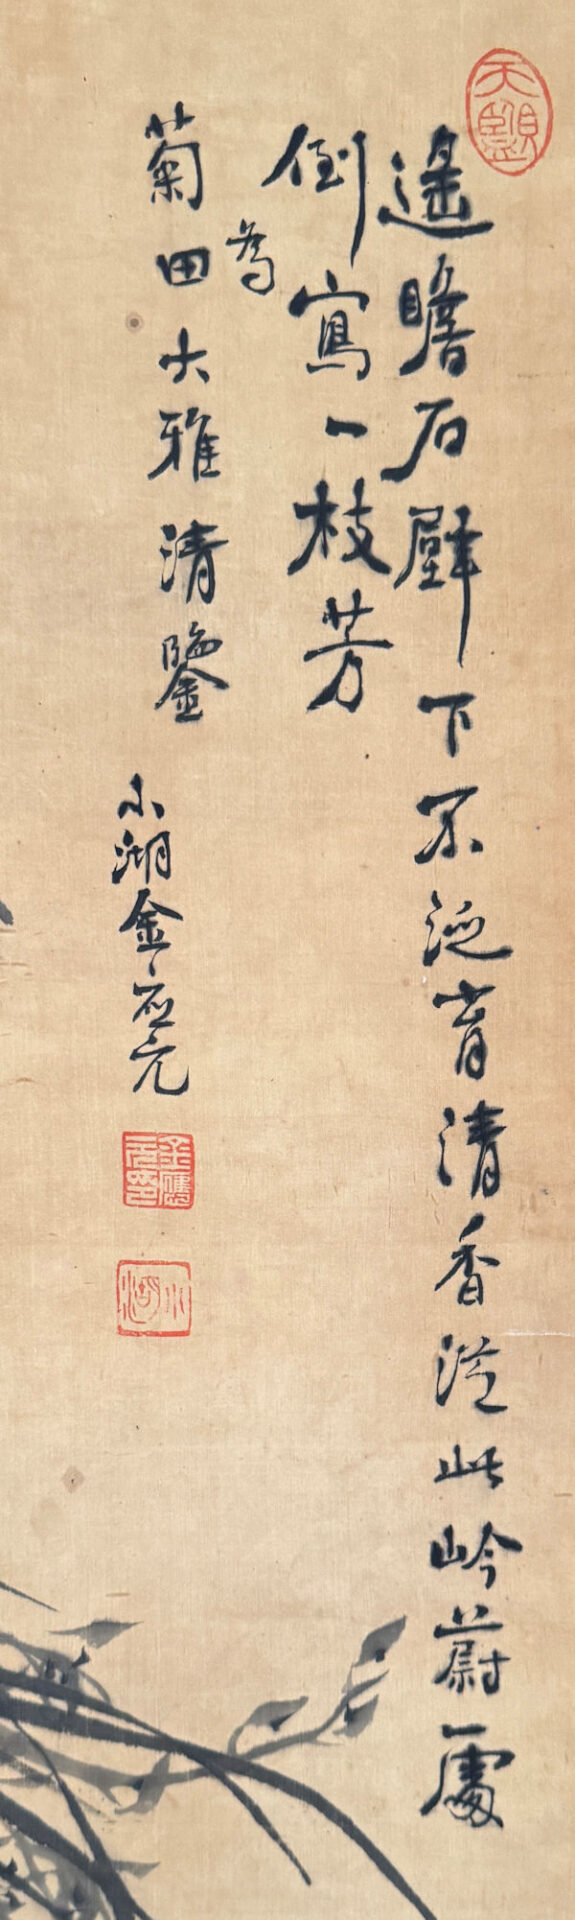 遙瞻石壁下不泛清香從此岒蔚處
倒寫一枝芳
為
菊田大雅清鑒
小湖金應元
金應元印
小湖